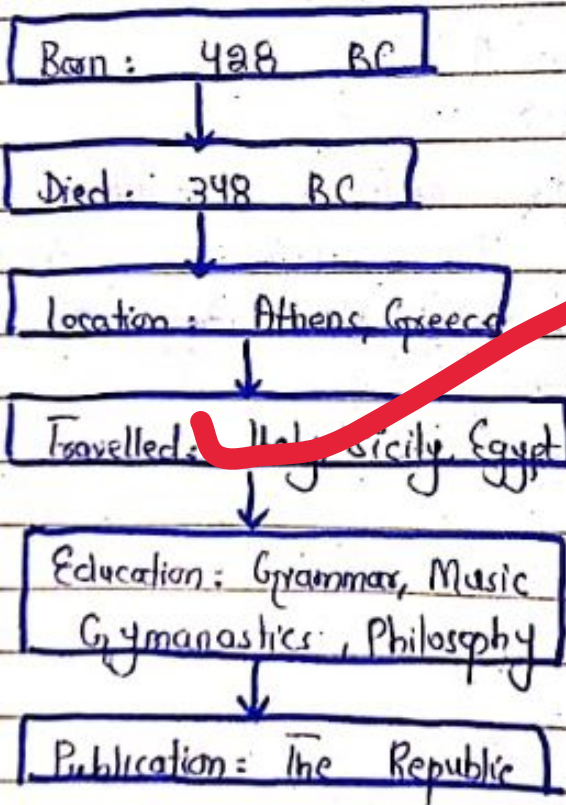 Born: 428 BC
Died: 348 BC
location: Athens, Greece
Travelled: Italy, Sicily, Egypt
Education: Grammar, Music
Gymanastics, Philosophy
Publication: The Republic